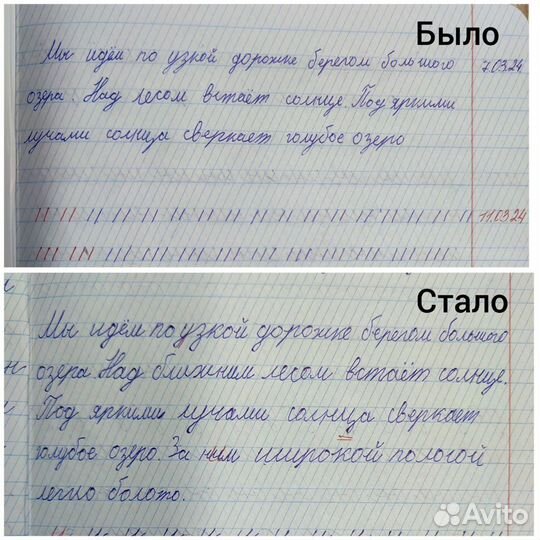 Было
Мы идём по узкой дорожке берегом большого 7.03.24
озера. Над лесом встаёт солнце. Под яркими
лучами солнца сверкает голубое озеро
11.03.24
Стало
Мы идём по узкой дорожке берегом большого
озера Над ближним лесом встаёт солнце.
Под яркими лучами солнца сверкает
голубое озеро. За ним широкой полосой
легло болото.
Avito